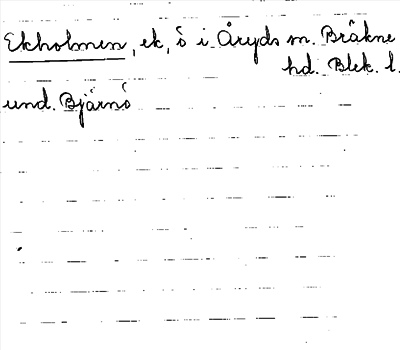 Ekholmen, ek, ö i Åryds sn. Bräkne
hd. Blek. l.
und. Bjärnö